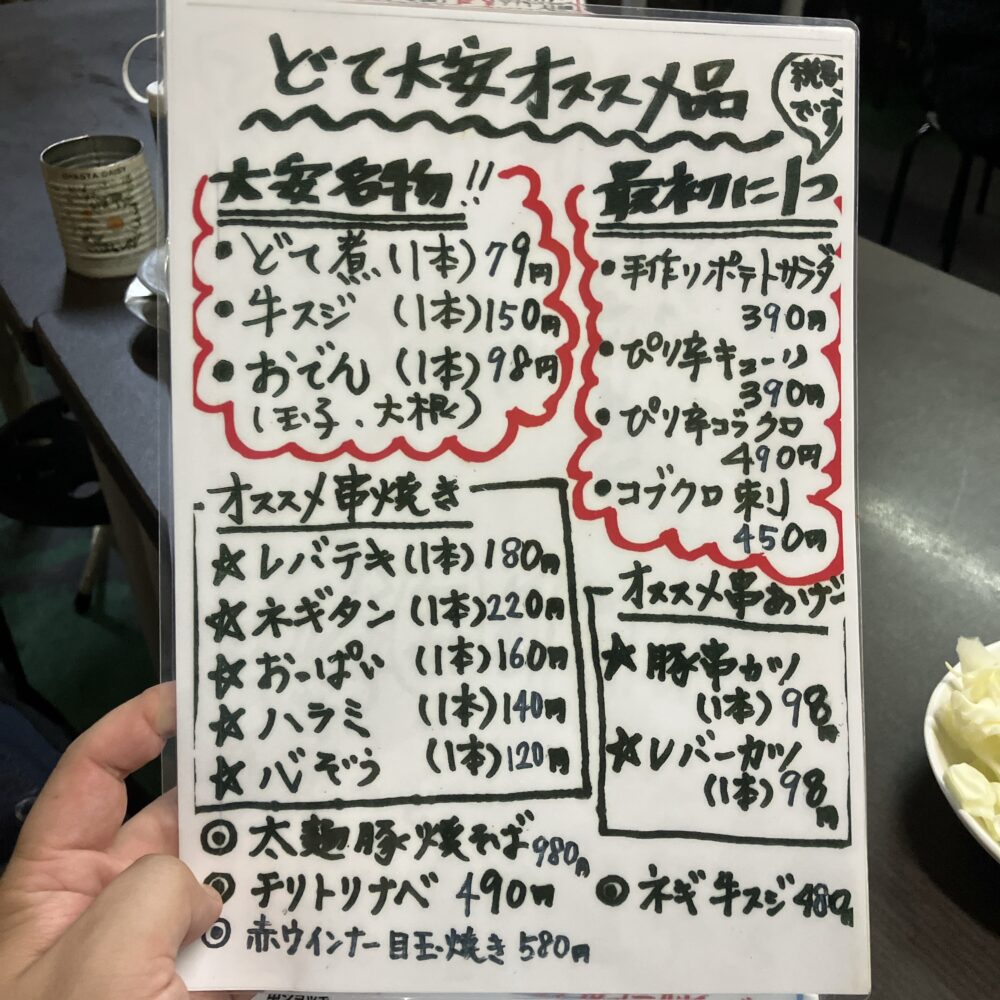 どて大安オススメ品
税別
です
大安名物!!
・どて煮(1本)79円
・牛スジ(1本)150円
・おでん(1本)98円
(玉子、大根)
最初に1つ
・手作りポテトサラダ
390円
・ぴり辛キューリ
390円
・ぴり辛コブクロ
490円
・コブクロ刺
450円
オススメ串焼き
☆レバテキ(1本)180円
☆ネギタン(1本)220円
☆おっぱい(1本)160円
☆ハラミ(1本)140円
☆心ぞう(1本)120円
オススメ串あげ
★豚串カツ
(1本)98円
☆レバーカツ
(1本)98円
◎太麺豚焼そば980円
◎チリトリナベ 490円
◎ネギ牛スジ480円
◎赤ウインナー目玉焼き580円